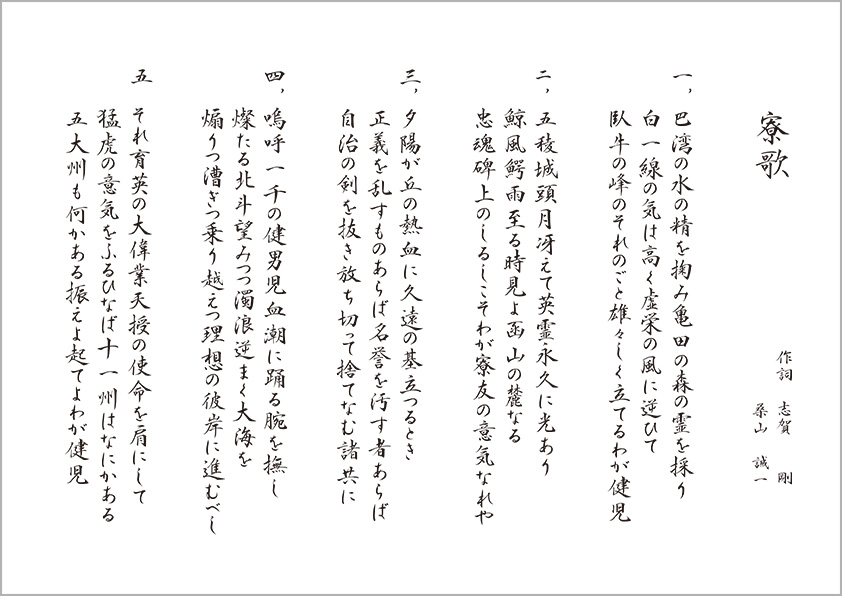 寮歌
作詞 志賀 剛
桑山 誠一
一、巴湾の水の精を掬み亀田の森の霊を採り
白一線の気は高く虚栄の風に逆ひて
臥牛の峰のそれのごと雄々しく立てるわが健児
二、五稜城頭月冴えて英霊永久に光あり
鯨風鰐雨至る時見よ函山の麓なる
忠魂碑上のしるしこそわが寮友の意気なれや
三、夕陽が丘の熱血に久遠の基立つるとき
正義を乱すものあらば名誉を汚す者あらば
自治の剣を抜き放ち切って捨てなむ諸共に
四、嗚呼一千の健男児血潮に踊る腕を撫し
燦たる北斗望みつつ濁浪逆まく大海を
煽りつ漕ぎつ乗り越えつ理想の彼岸に進むべし
五 それ育英の大偉業天授の使命を肩にして
猛虎の意気をふるひなば十一州はなにかある
五大州も何かある振えよ起てよわが健児